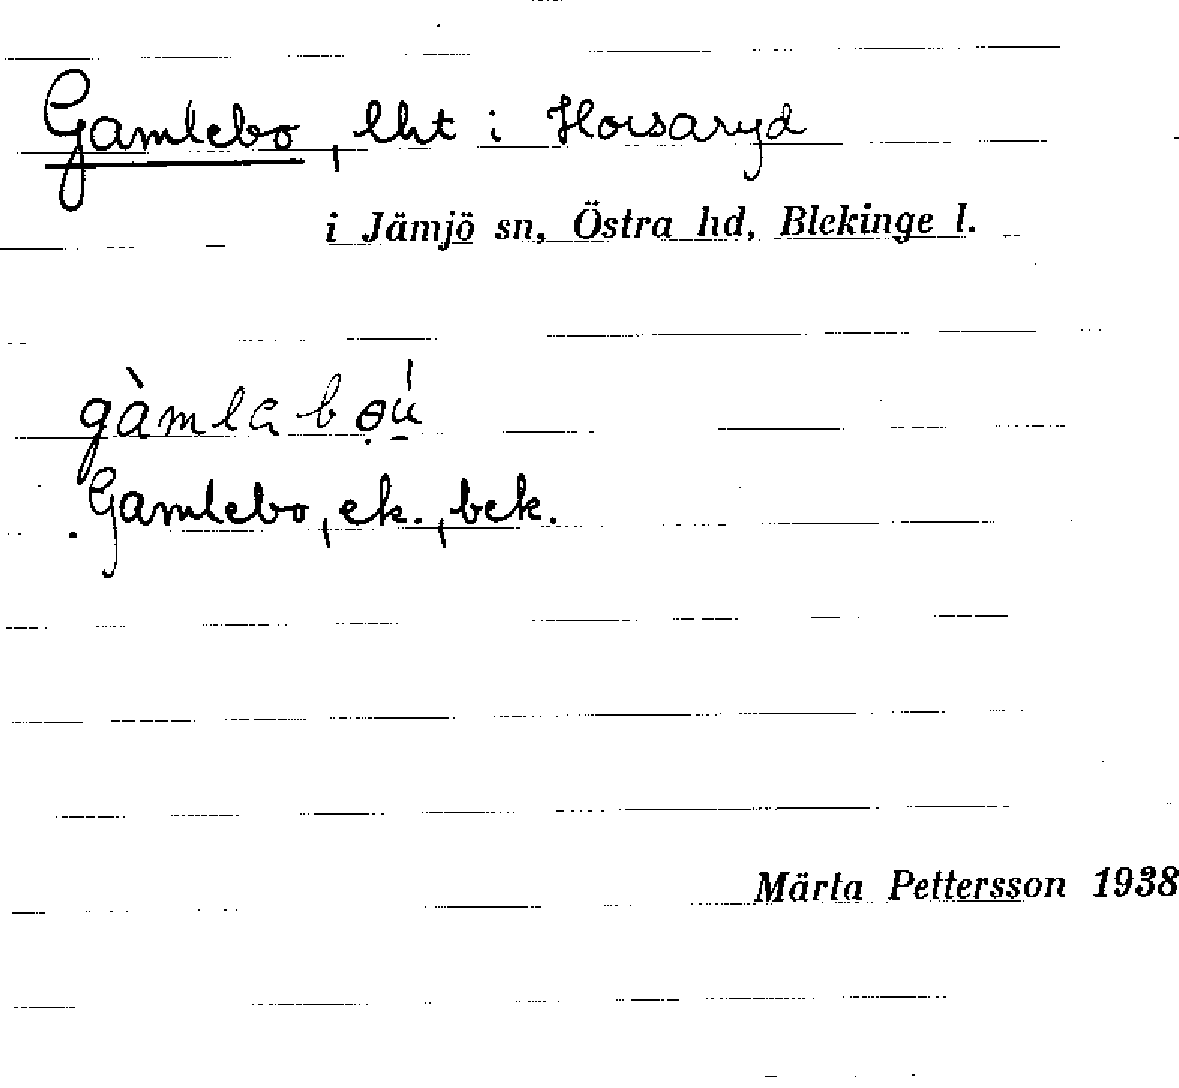 Gamlebo, lht i Horsaryd
i Jämjö sn, Östra hd, Blekinge l.
gàmla bọu̠̍
Gamlebo, ek., bek.
Märta Pettersson 1938